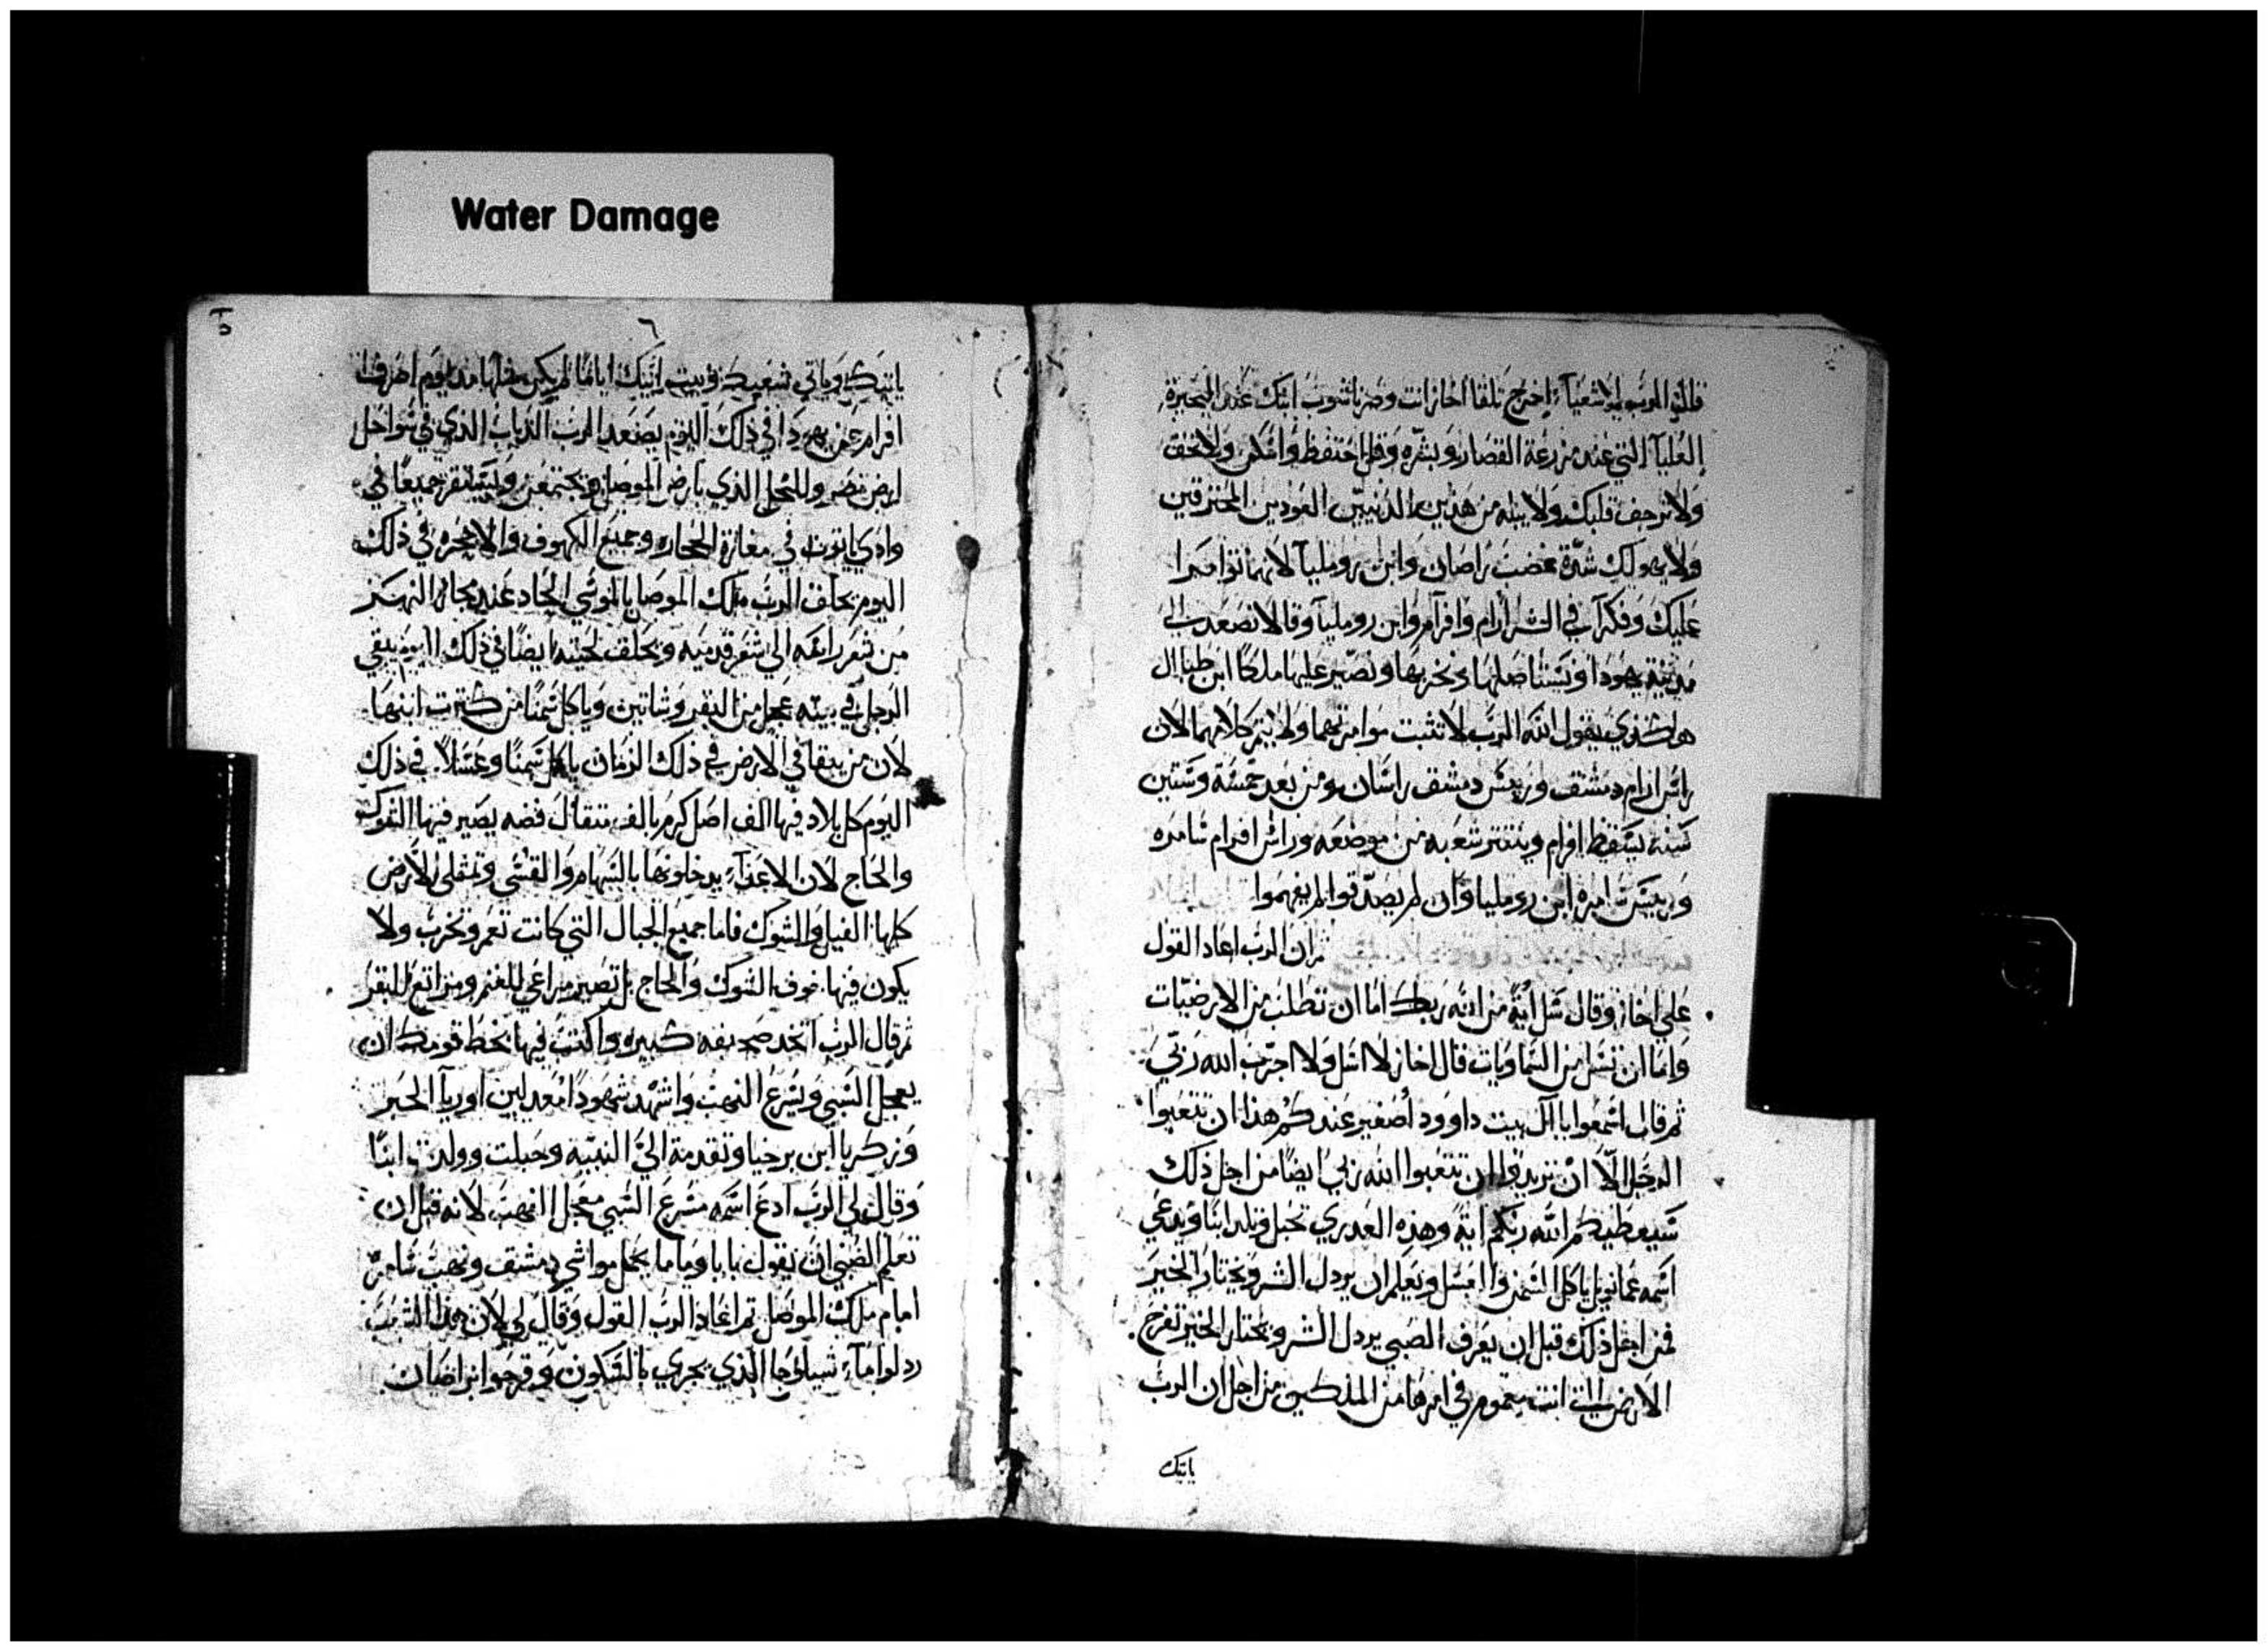 Water Damage
فقال الرب لاشعيا اخرج تلقا اخاز انت وضرنا شوب ابنك عند البحيرة
العليا التي عند مزرعة القصار وبشره وقل احتفظ واسكن ولا تخف
ولا يرجف قلبك ولا يباه من هذين الذنبين العودين المحترقين
ولا يهولك شدة غضب راصان وابن روملیا لانهما توامرا
عليك وفكرا في الشر ارام وافرام وابن رومليا وقالا نصعد الى
مدينة يهودا ونستاصلها ونخربها ونصير عليها ملكا ابن طباال
هاكذي يقول الله الرب لا تثبت موامرتهما ولا يتم كلامهما لان
راس ارام دمشق وريس دمشق راسان ومن بعد خمسة وستين
سنة يسقط افرام وينتقر شعبه من موضعه وراس افرام شامره
وريس شامره ابن رومليا وان لم يصدقوا لم يفهموا
ثم ان الرب اعاد القول
على اخاز وقال سل اية من الله ربك اما ان تطلب من الارضيات
واما ان تسل من السماويات قال اخاز لا اسل ولا اجرب الله ربي
ثم قال اسمعوا يا آل بيت داوود أصغير عندكم هذا ان تتعبوا
الرجال الا ان تريدوا ان تتعبوا الله ربي ايضا من اجل ذلك
سيعطيكم الله ربكم اية وهذه العدري تحبل وتلد ابنا ويدعي
اسمه عمانويل ياكل السمن والعسل ويعلم ان يردل الشر ويختار الخير
فمن اجل ذلك قبل ان يعرف الصبي يردل الشر ويختار الخير تفرج
الارض التي انت مغموم في امرها من الملكين من اجل ان الرب
ياتيك
٦
ياتيك وياتي شعبك وبيت ابيك اياما لم يكن مثلها مذ يوم اصرف
افرام عن يهودا في ذلك اليوم يصعد الرب الذباب الذي في سواحل
ارض مصر وللنحل الذي بارض الموصل ويجتمعن ويستقر جميعا في
وادي ياتوت في مغارة الحجاره وجميع الكهوف والاجحره في ذلك
اليوم يحلق الرب ملك الموصل بالموسى الحاد عند مجاز النهر
من شعر راسه الى شعر قدميه ويحلق لحيته ايضا في ذلك اليوم يبقي
الرجل في بيته عجل من البقر وشاتين وياكل سمنا من كثرت ابنها
لان من يبقا في الارض في ذلك الزمان ياكل سمنا وعسلا في ذلك
اليوم كل بلاد فيها الف اصل كرم بالف مثقال فضه يصير فيها الشوك
والحاج لان الاعدآء يدخلونها بالسهام والقسي وتمتلي الارض
كلها الفيل والشوك فاما جميع الجبال التي كانت تعمر وتخرب ولا
يكون فيها خوف الشوك والحاج بل تصير مراعي للغنم ومراتع للبقر
ثم قال الرب اتخد صحيفه كبيره واكتب فيها بخط قومك ان
يعجل السبي ويسرع النهب واشهد شهودا معدلين اوريا الحبر
وزكريا ابن برخيا وتقدمة الى النبية وحبلت وولدت ابنا
وقال لي الرب ادع اسمه مسرع السبي معجل النهب لانه قبل ان
تعلم الصبي ان يقول بابا وماما يحمل مواشي دمشق ونهب شامره
امام ملك الموصل ثم اعاد الرب القول وقال لي لان هذا الشعب
ردلوا مآء شيلوحا الذي يجري بالسكون وفرحوا براصان